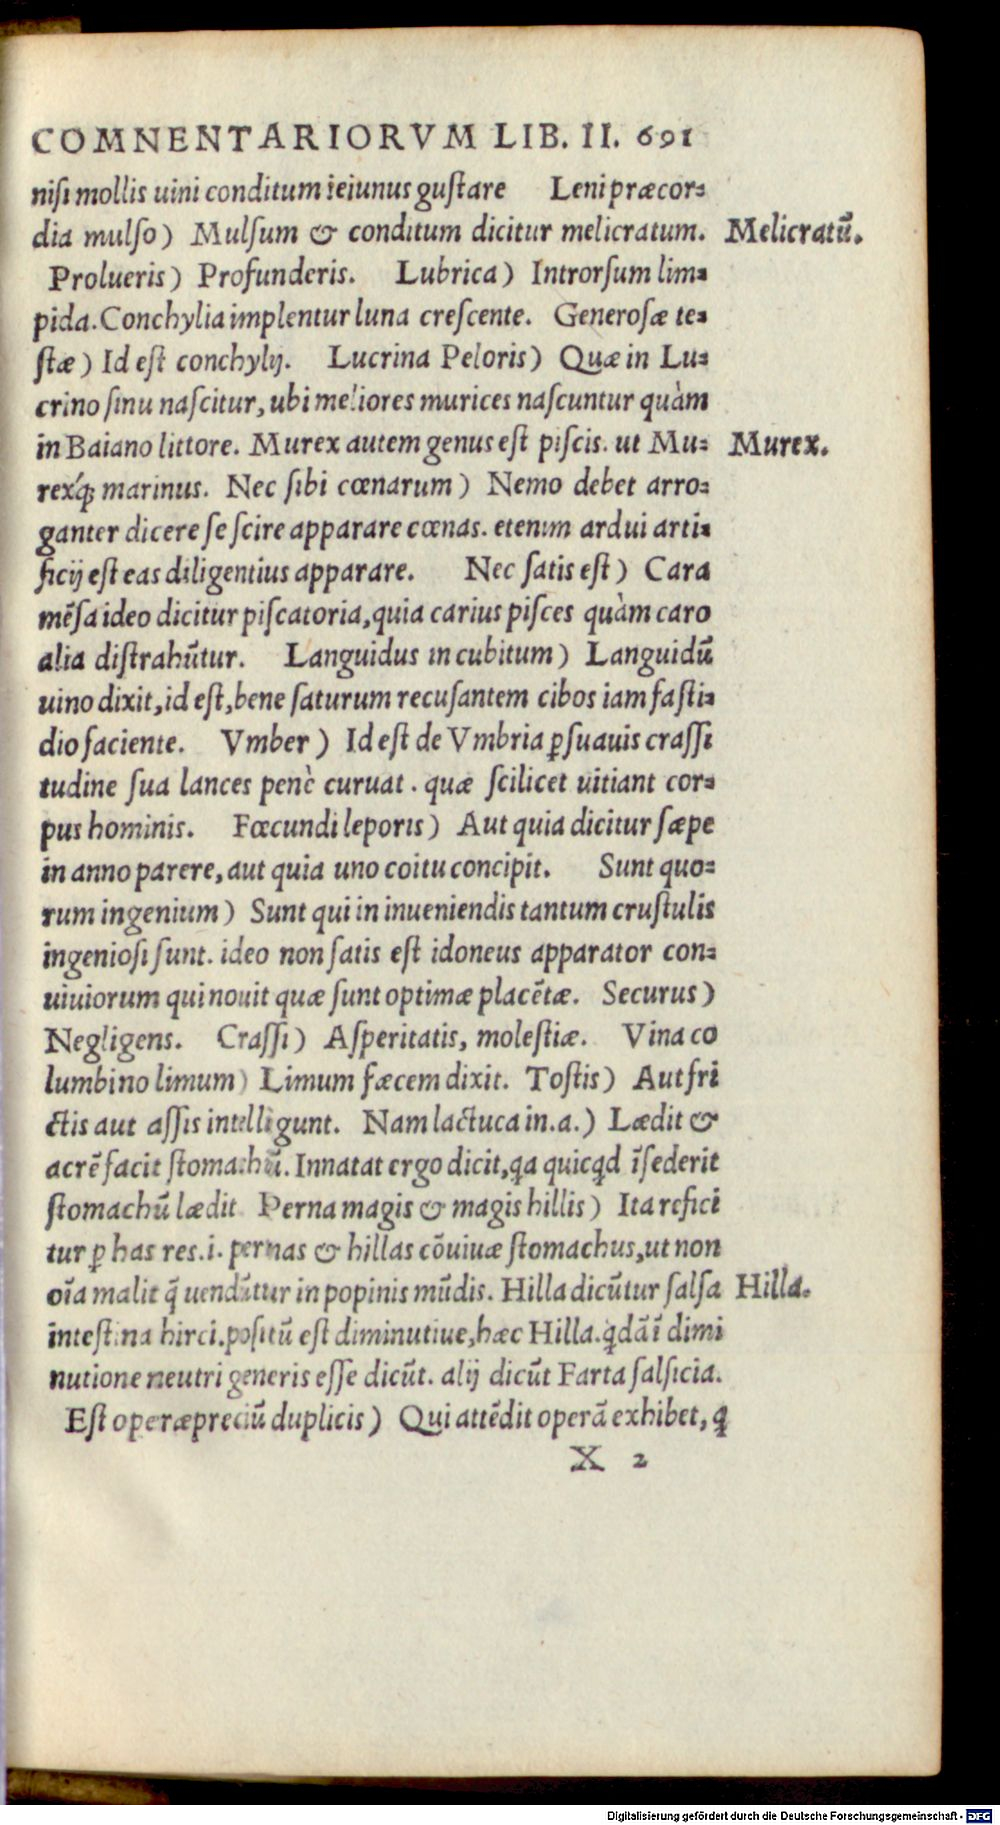 COMNENTARIORVM LIB. II. 691
niſi mollis uini conditum ieiunus guſtare Leni præcor=
dia mulſo) Mulſum & conditum dicitur melicratum. Melicratū.
Prolueris) Profunderis. Lubrica) Introrſum lim=
pida. Conchylia implentur luna creſcente. Generoſæ te=
ſtæ) Id eſt conchylij. Lucrina Peloris) Quæ in Lu=
crino ſinu naſcitur, ubi meliores murices naſcuntur quàm
in Baiano littore. Murex autem genus eſt piſcis. ut Mu= Murex.
rexq́; marinus. Nec ſibi cœnarum) Nemo debet arro=
ganter dicere ſe ſcire apparare cœnas. etenim ardui arti=
ficij eſt eas diligentius apparare. Nec ſatis eſt) Cara
mēſa ideo dicitur piſcatoria, quia carius piſces quàm caro
alia diſtrahūtur. Languidus in cubitum) Languidū
uino dixit, id eſt, bene ſaturum recuſantem cibos iam faſti=
dio faciente. Vmber) Id eſt de Vmbria ꝑſuauis craſſi
tudine ſua lances penè curuat. quæ ſcilicet uitiant cor=
pus hominis. Fœcundi leporis) Aut quia dicitur ſæpe
in anno parere, aut quia uno coitu concipit. Sunt quo=
rum ingenium) Sunt qui in inueniendis tantum cruſtulis
ingenioſi ſunt. ideo non ſatis eſt idoneus apparator con=
uiuiorum qui nouit quæ ſunt optimæ placētæ. Securus)
Negligens. Craſſi) Aſperitatis, moleſtiæ. Vina co
lumbino limum) Limum fæcem dixit. Toſtis) Aut fri
ctis aut aſſis intelligunt. Nam lactuca in.a.) Lædit &
acrē facit ſtomachū. Innatat ergo dicit, ꝗa quicꝗd īſederit
ſtomachū lædit Perna magis & magis hillis) Ita refici
tur ꝑ has res.i. pernas & hillas cōuiuæ ſtomachus, ut non
oīa malit q̄ uendūtur in popinis mūdis. Hilla dicūtur ſalſa Hilla.
inteſtina hirci. poſitū eſt diminutiue, hæc Hilla. ꝗdā ī dimi
nutione neutri generis eſſe dicūt. alij dicūt Farta ſalſicia.
Eſt operæpreciū duplicis) Qui attēdit operā exhibet, ꝗ
X 2
Digitalisierung gefördert durch die Deutsche Forschungsgemeinschaft - DFG